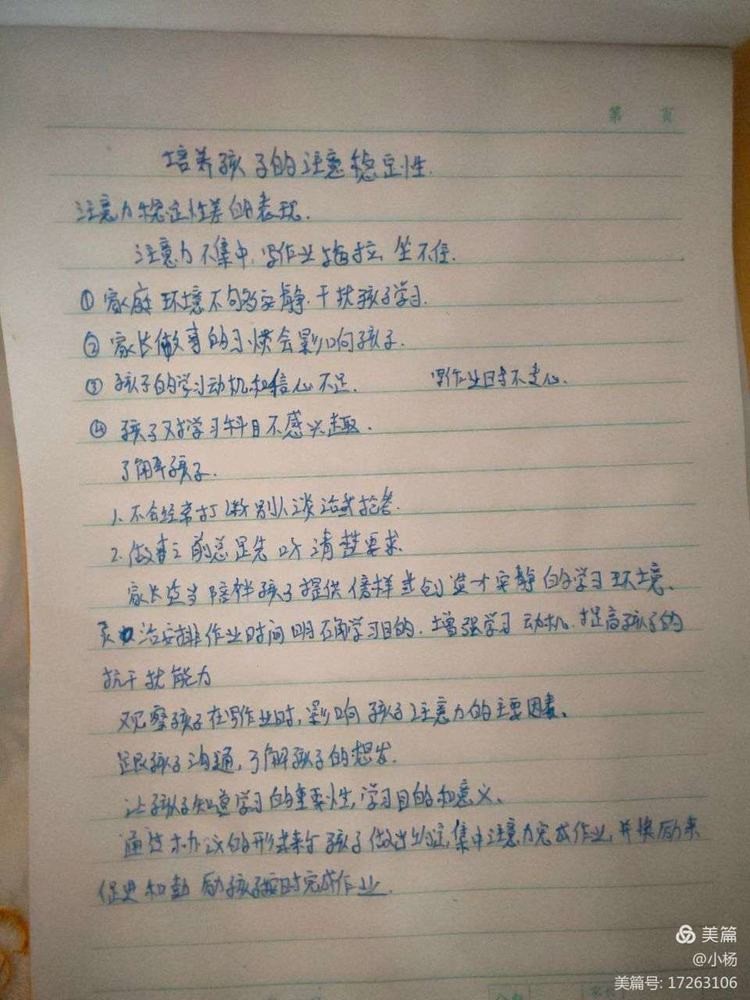 第 页
培养孩子的注意稳定性.
注意力稳定性差的表现.
注意力不集中,写作业拖拉,坐不住.
①家庭环境不够安静.干扰孩子学习.
②家长做事的习惯会影响孩子.
③孩子的学习动机和信心不足. 写作业时不走心.
④孩子对学习科目不感兴趣.
了解孩子.
1.不会经常打断别人谈话或抢答.
2.做事之前总是先听清楚要求.
家长应当陪伴孩子提供榜样或创造才安静的学习环境、
灵活安排作业时间明确学习目的.增强学习动机.提高孩子的
抗干扰能力
观察孩子在写作业时,影响孩子注意力的主要因素、
跟孩子沟通,了解孩子的想法.
让孩子知道学习的重要性,学习目的和意义、
通过协议的形式来和孩子做出约定,集中注意力完成作业,并奖励来
促使和鼓励孩子按时完成作业.
美篇
@小杨
美篇号: 17263106